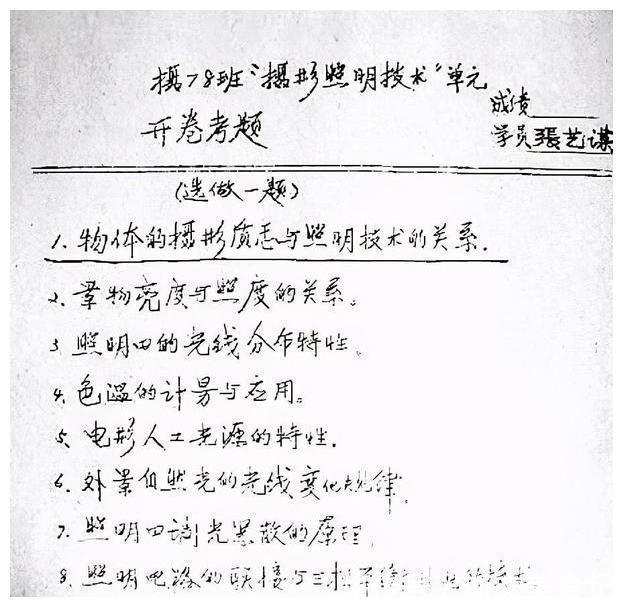 摄78班“摄影照明技术”单元
开卷考题
成绩
学员 張艺谋
(选做一题)
1. 物体的摄影质志与照明技术的关系.
2. 景物亮度与照度的关系。
3. 照明田的光线分布特性。
4. 色温的计易与应用。
5. 电影人工光源的特性.
6. 外景自然光的光线变化规律.
7. 照明田调光累散的原理.
8. 照明电路的联接与三相平衡的技术